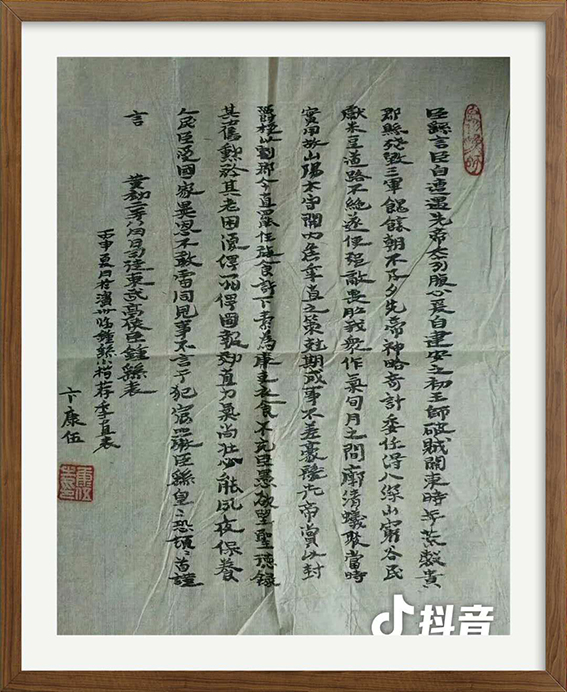 臣繇言臣自遭遇先帝忝列腹心爰自建安之初王師破賊關東時年荒穀貴
郡縣殘毀三軍餽饟朝不及夕先帝神略奇計委任得人深山窮谷民
獻米豆道路不絕遂使強敵喪膽我眾作氣旬月之間廓清蟻聚當時
實用故山陽太守關內侯季直之策剋期成事不差豪髮先帝賞以封
爵授以劇郡今直罷任旅食許下素為廉吏衣食不充臣愚欲望聖德錄
其舊勳矜其老困復俾一州俾圖報效直力氣尚壯必能夙夜保養
人民臣受國家異恩不敢雷同見事不言干犯宸嚴臣繇皇〻恐頓〻首謹
言
黃初二年八月日司徒東武亭侯臣鍾繇表
丙申夏月於濱州臨鍾繇小楷荐季直表
卞康伍
抖音